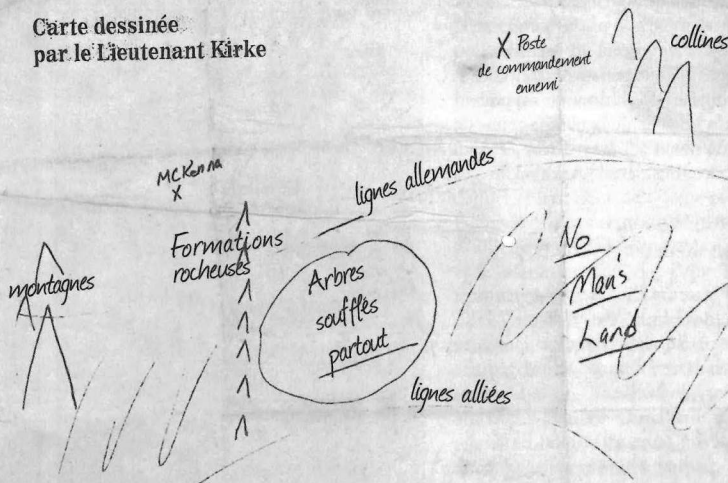 Carte dessinée
par le Lieutenant Kirke
X Poste
de commandement
ennemi
collines
MCKenna
X
lignes allemandes
Formations
rocheuses
No
Man's
Land
montagnes
Arbres
soufflés
partout
lignes alliées